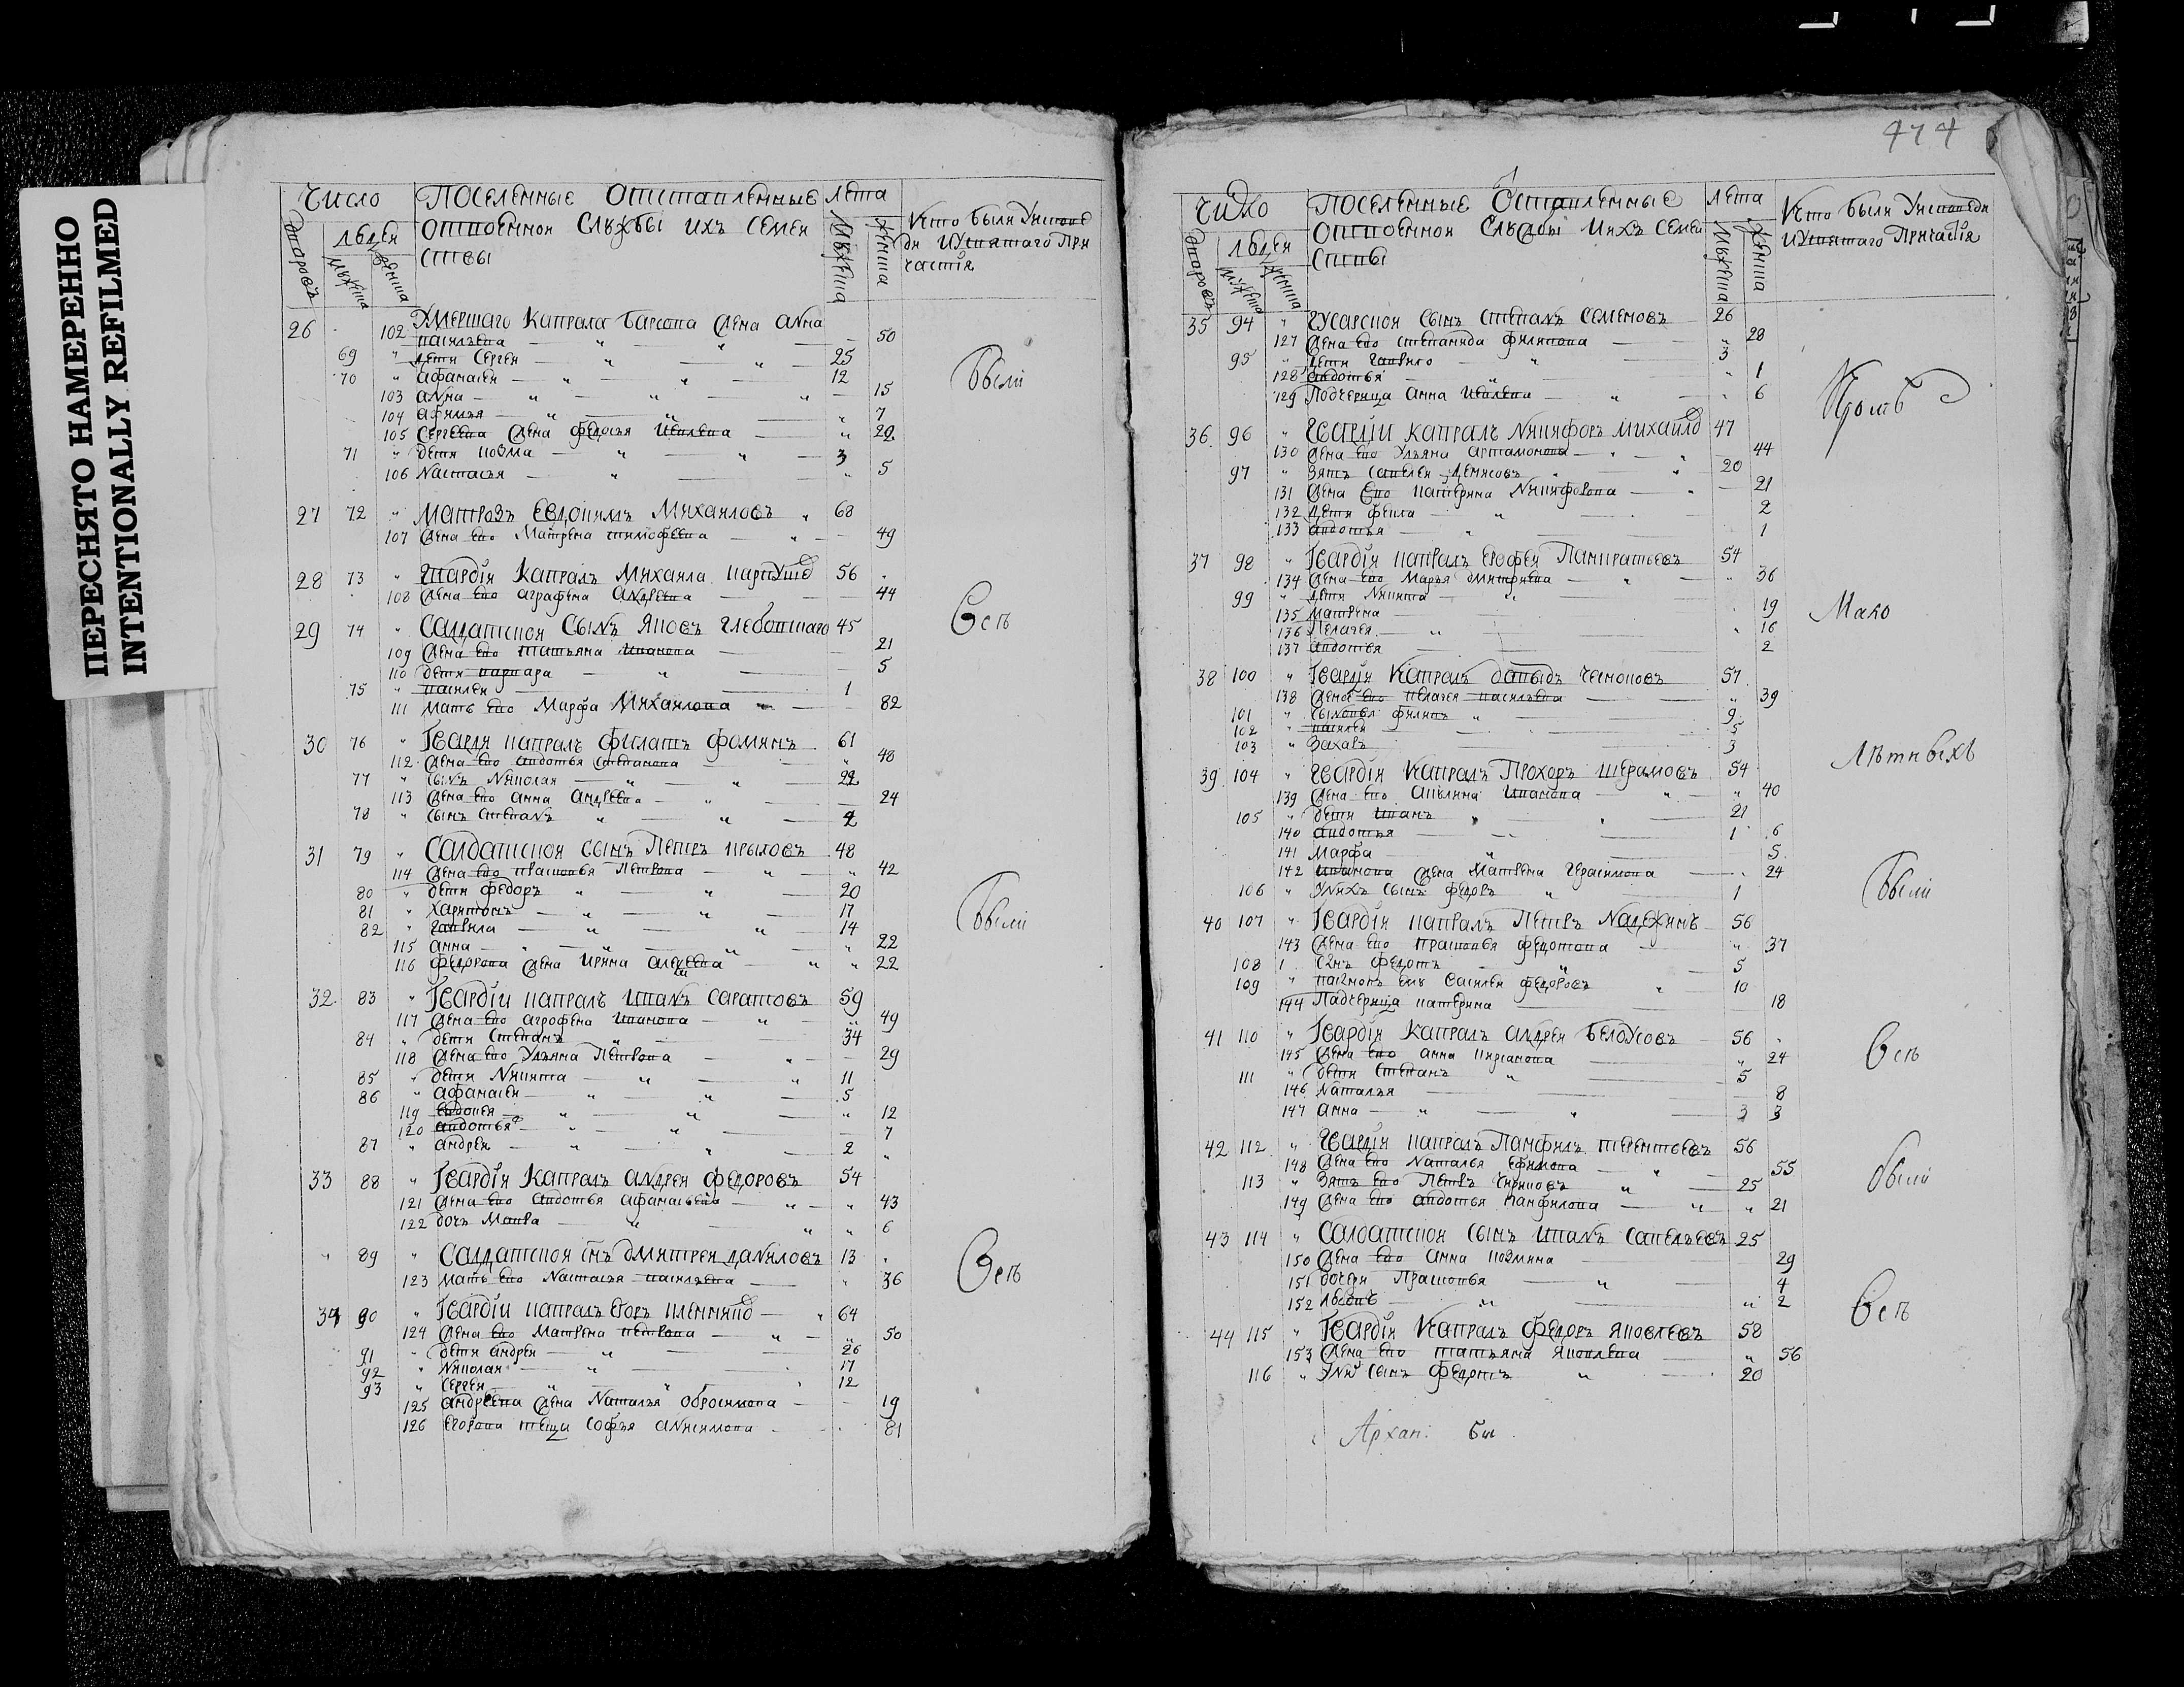 ПЕРЕСНЯТО НАМЕРЕННО
INTENTIONALLY REFILMED
Число Поселенные Отставленные Лета
Отвоенной Службы ихъ Семей
ствы
Кто были Уиспове
ди иУсвятаго При
частія
дворовъ людей мужеска женска мужеска женска
26 102 Умершаго Капрала Барсова жена Анна
васильева 50
69 дети Сергей 25
70 афанасей 12
103 анна 15
104 афимья 7
105 Сергеева жена федосья Ивлева 29
71 дети козма 3
106 Настасья 5
были
27 72 Матрозъ Евдокимъ Михаиловъ 68
107 жена ево Матрена тимофеева 49
28 73 Гвардіи Капралъ Михаила 56
108 жена ево аграфена андреева 44
29 74 Салдатской Сынъ Яковъ 45
109 жена ево татьяна иванова 21
110 дети варвара 5
75 василей 1
111 мать ево Марфа Михаилова 82
Все
30 76 Гвардіи капралъ филатъ фоминъ 61
112 жена ево авдотья степанова 48
77 сынъ Николай 22
113 жена ево анна андреева 24
78 сынъ степанъ 2
31 79 Салдатской сынъ Петръ крыловъ 48
114 жена ево прасковья Петрова 42
80 дети федоръ 20
81 харитонъ 17
82 гаврила 14
115 анна 22
116 федорова жена ирина 22
были
32 83 Гвардіи капралъ иванъ саратовъ 59
117 жена ево агрофена иванова 49
84 дети степанъ 34
118 жена ево Ульяна Петрова 29
85 дети Никита 11
86 афанасей 5
119 12
120 авдотья 7
87 андрей 2
33 88 Гвардіи Капралъ андрей федоровъ 54
121 жена ево авдотья афанасьева 43
122 дочь Мавра 6
89 Салдатской снъ дмитрей даниловъ 13
123 мать ево Настасья васильева 36
Все
34 90 Гвардіи капралъ Егоръ 64
124 жена ево Матрена петрова 50
91 дети андрей 26
92 Николай 17
93 Сергей 12
125 андреева жена Наталья обросимова 19
126 Егорова теща софья анисимова 81
474
Число Поселенные Оставленные Лета
Отвоенной Службы Ихъ Семей
ствы
Кто были Уисповеди
иУсвятаго Причастія
дворовъ людей мужеска женска мужеска женска
35 94 Гусарской сынъ степанъ семеновъ 26
127 жена ево степанида филипова 28
95 дети гаврило 3
128 авдотья 1
129 Подчерица анна 6
Кромъ
36 96 Гвардіи капралъ Никифоръ михаило 47
130 жена ево Ульяна артамонова 44
97 зять савелей денисовъ 20
131 жена ево катерина Никифорова 21
132 дети фекла 2
133 авдотья 1
37 98 Гвардіи капралъ ерофей Панкратьевъ 54
134 жена ево марья дмитриева 36
99 дети Никита
135 матрена 19
136 Пелагея 16
137 авдотья 2
Мало
38 100 Гвардіи Капралъ давыдъ 57
138 жена ево пелагея васильева 39
101 сыновья филипъ 9
102 василей 5
103 Захаръ 3
Лѣтныхъ
39 104 Гвардіи Капралъ Прохоръ 54
139 жена ево акилина иванова 40
105 дети иванъ 21
140 авдотья 1 6
141 Марфа 5
142 иванова жена Матрена герасимова 24
106 Унихъ сынъ федоръ 1
были
40 107 Гвардіи капралъ Петръ Надежинъ 56
143 жена ево прасковья федотова 37
108 Снъ федотъ 5
109 пасынокъ ему василей федоровъ 10
144 Падчерица катерина 18
41 110 Гвардіи капралъ андрей Белоусовъ 56
145 жена ево анна кирсанова 24
111 дети степанъ 5
146 Наталья 8
147 анна 3 3
Все
42 112 Гвардіи капралъ Панфилъ терентьевъ 56
148 жена ево Наталья Ефимова 55
113 зять ево Петръ 25
149 жена ево авдотья панфилова 21
были
43 114 Салдатской сынъ иванъ савельевъ 25
150 жена ево анна козмина 29
151 дочери Прасковья 4
152 2
Все
44 115 Гвардіи Капралъ федоръ яковлевъ 58
153 жена ево татьяна яковлева 56
116 Унй сынъ федотъ 20
Архап: бы